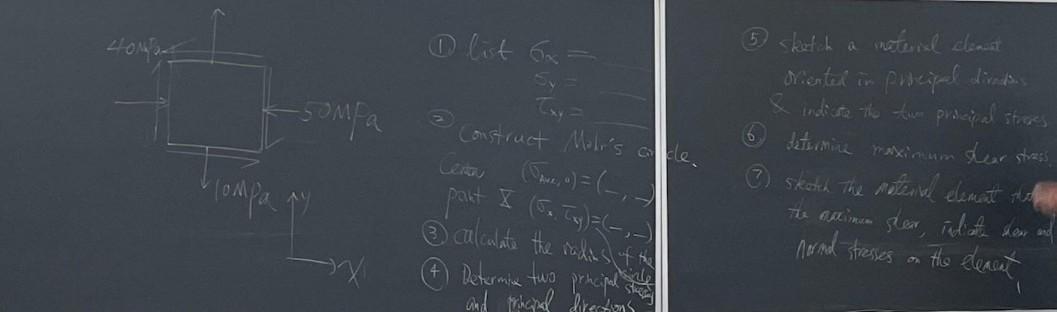 40MPa
50MPa
10MPa
y
x
① list σx = ___
σy = ___
τxy = ___
② Construct Mohr's circle.
Center (σAve, 0) = (_, _)
point X (σx, τxy) = (_, _)
③ calculate the radius of the circle
④ Determine two principal stresses
and principal directions
⑤ sketch a material element
oriented in principal directions
& indicate the two principal stresses
⑥ determine maximum shear stress
⑦ sketch the material element
the maximum shear, indicate shear and
normal stresses on the element